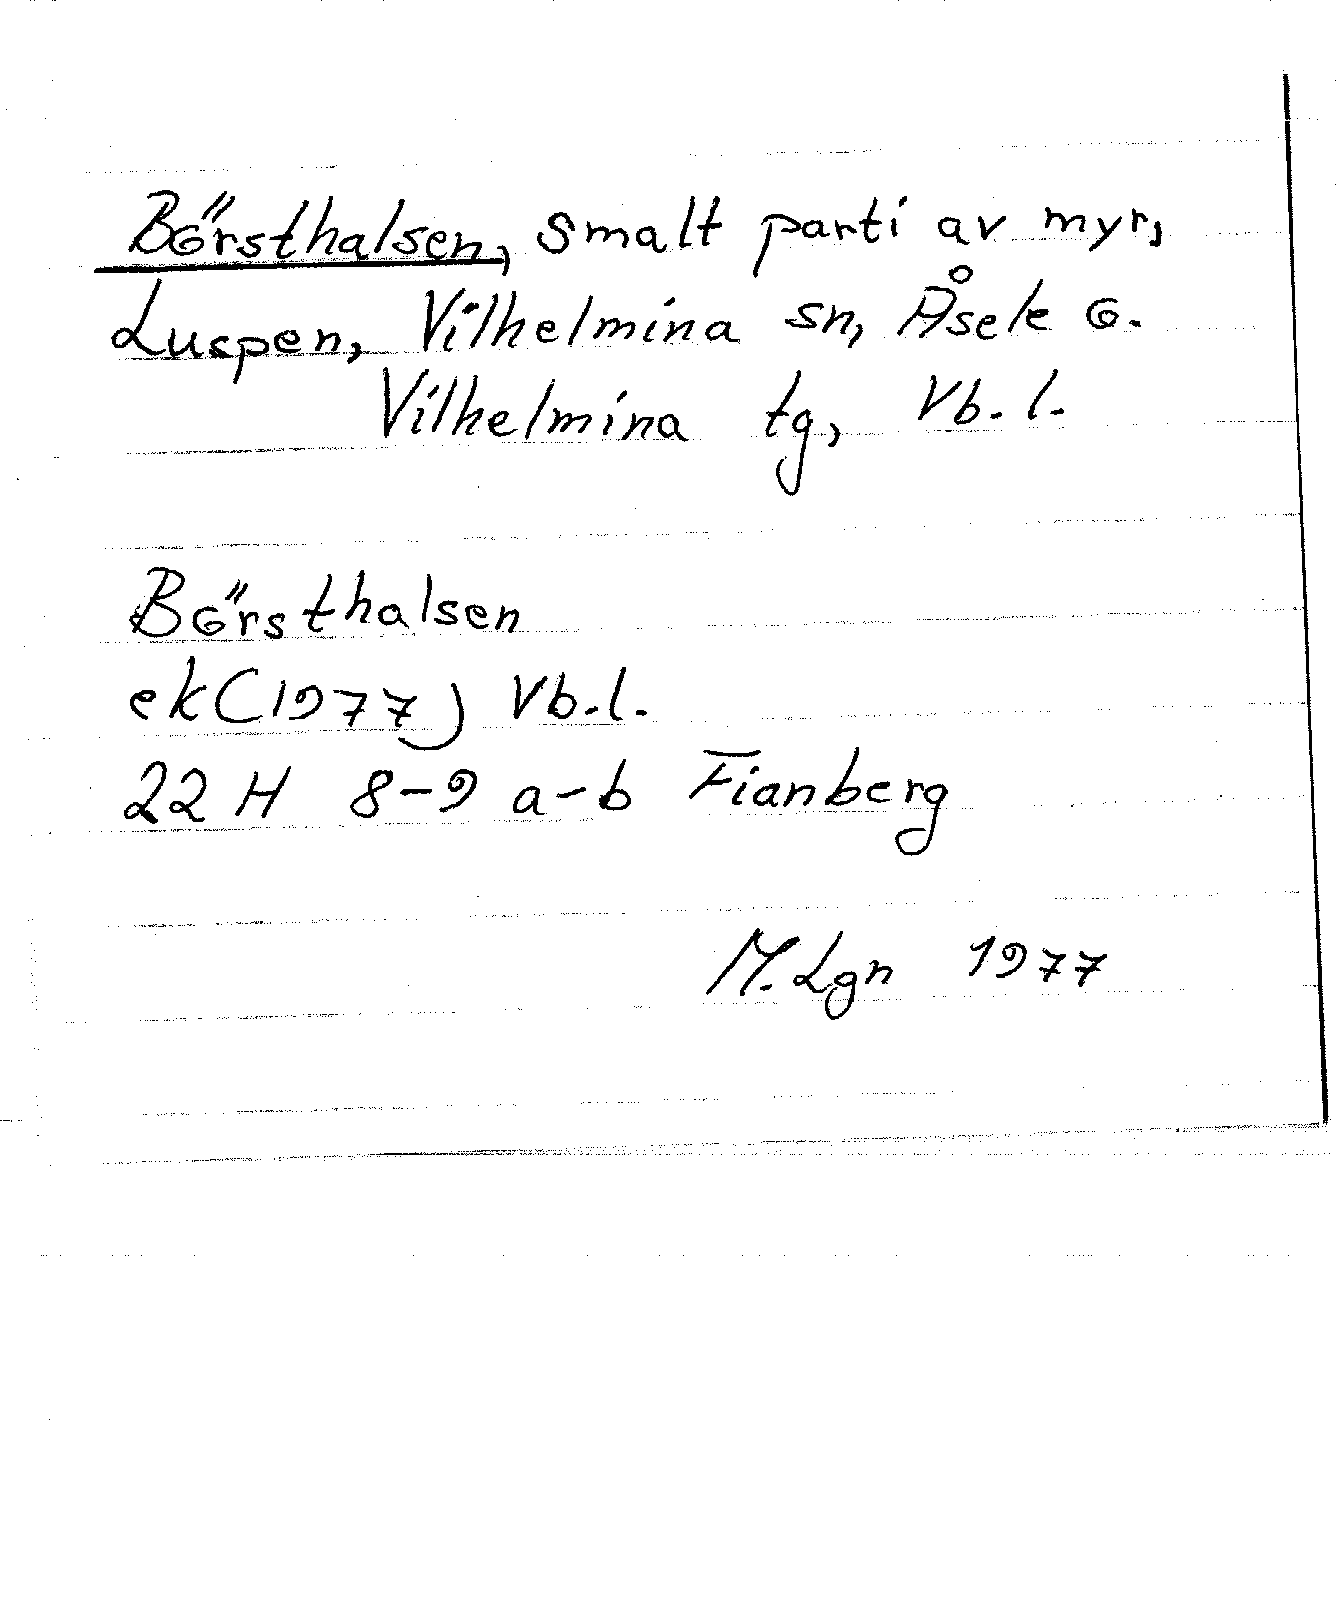 Börsthalsen, smalt parti av myr,
Luspen, Vilhelmina sn, Åsele o.
Vilhelmina tg, Vb. l.
Börsthalsen
ek (1977) Vb.l.
22 H 8-9 a-b Fianberg
M. Lgn 1977